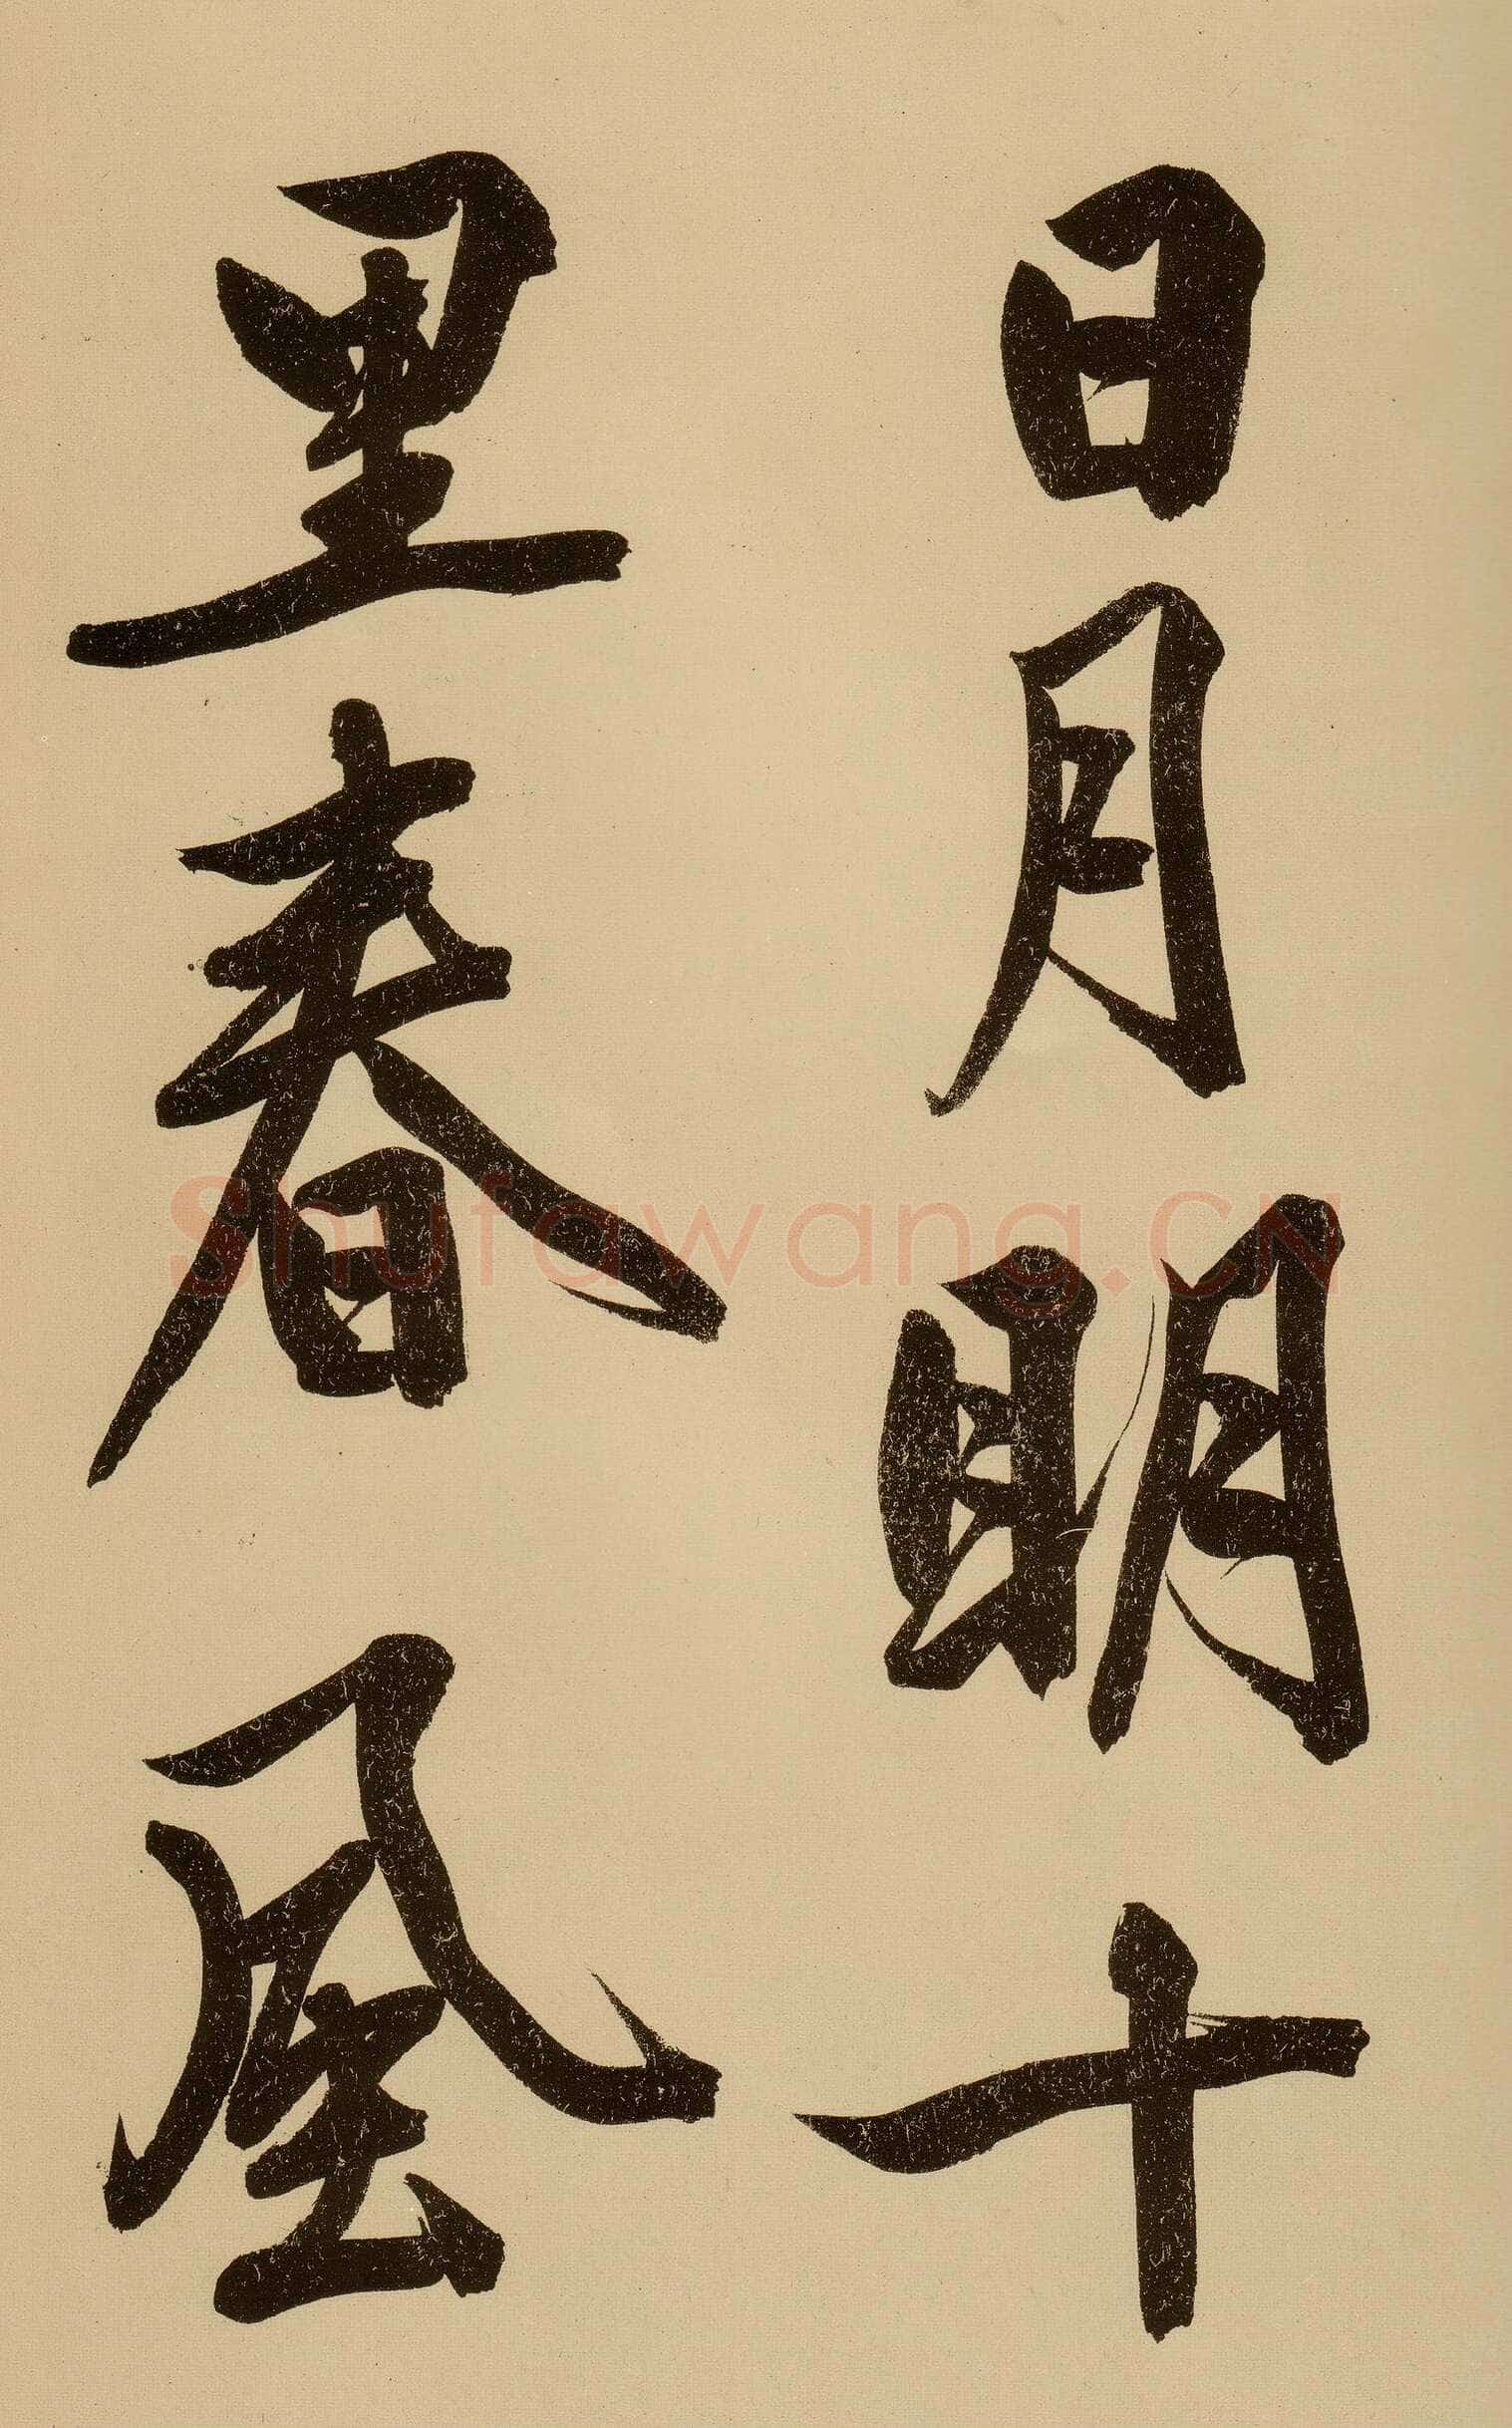 日月明十
里春風
Shufawang.CN